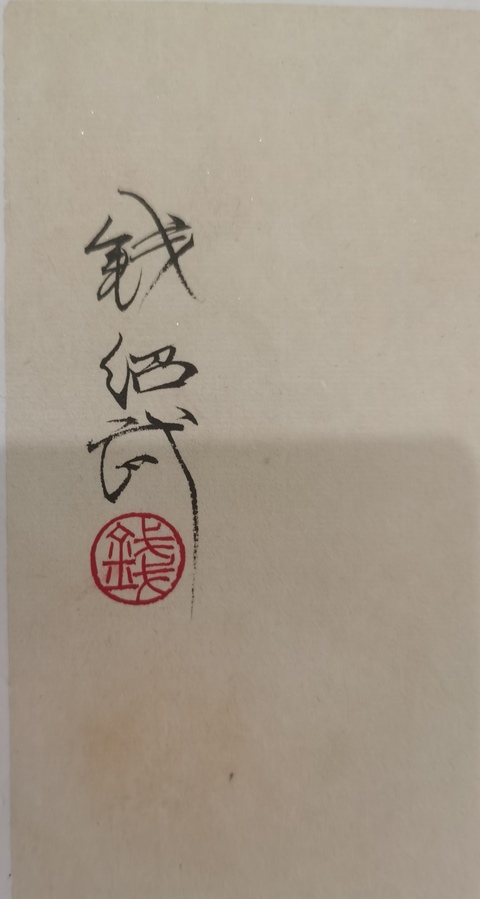 钱绍武
錢